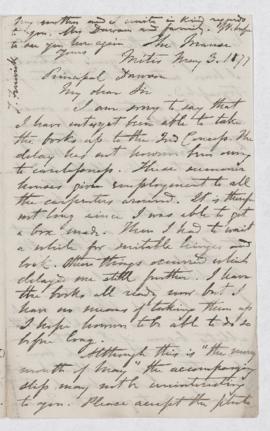 my mother and I unite in kind regards
to you, Mrs Dawson and family. We hope
to see you here again. The Manse
Yours Metis May 3. 1877
Principal Dawson
My dear Sir
I am sorry to say that
I have not yet been able to take
the books up to the Ind Camp. The
delay has not however been owing
to carelessness. These summer
houses give employment to all
the carpenters around. It is therefore
not long since I was able to get
a box made. Then I had to wait
a while for suitable hinges and
lock. Other things occurred which
delayed me still further. I have
the books all ready now but I
have no means of taking them up
I hope however to be able to do so
before long.
Although this is "the merry
month of May" the accompanying
slip may not be uninteresting
to you. Please accept the photo